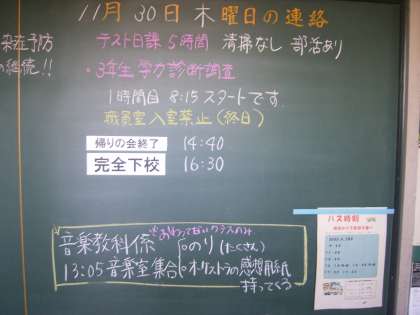 11月30日木曜日の連絡
染症予防
の継続!!
テスト日課5時間 清掃なし 部活あり
・3年生学力診断調査
1時間目 8:15 スタートです。
職員室入室禁止(終日)
帰りの会終了 14:40
完全下校 16:30
※おわってないクラスのみ
音楽教科係 ・のり(たくさん)
13:05 音楽室集合 ・オーケストラの感想用紙
持ってくる
バス時刻